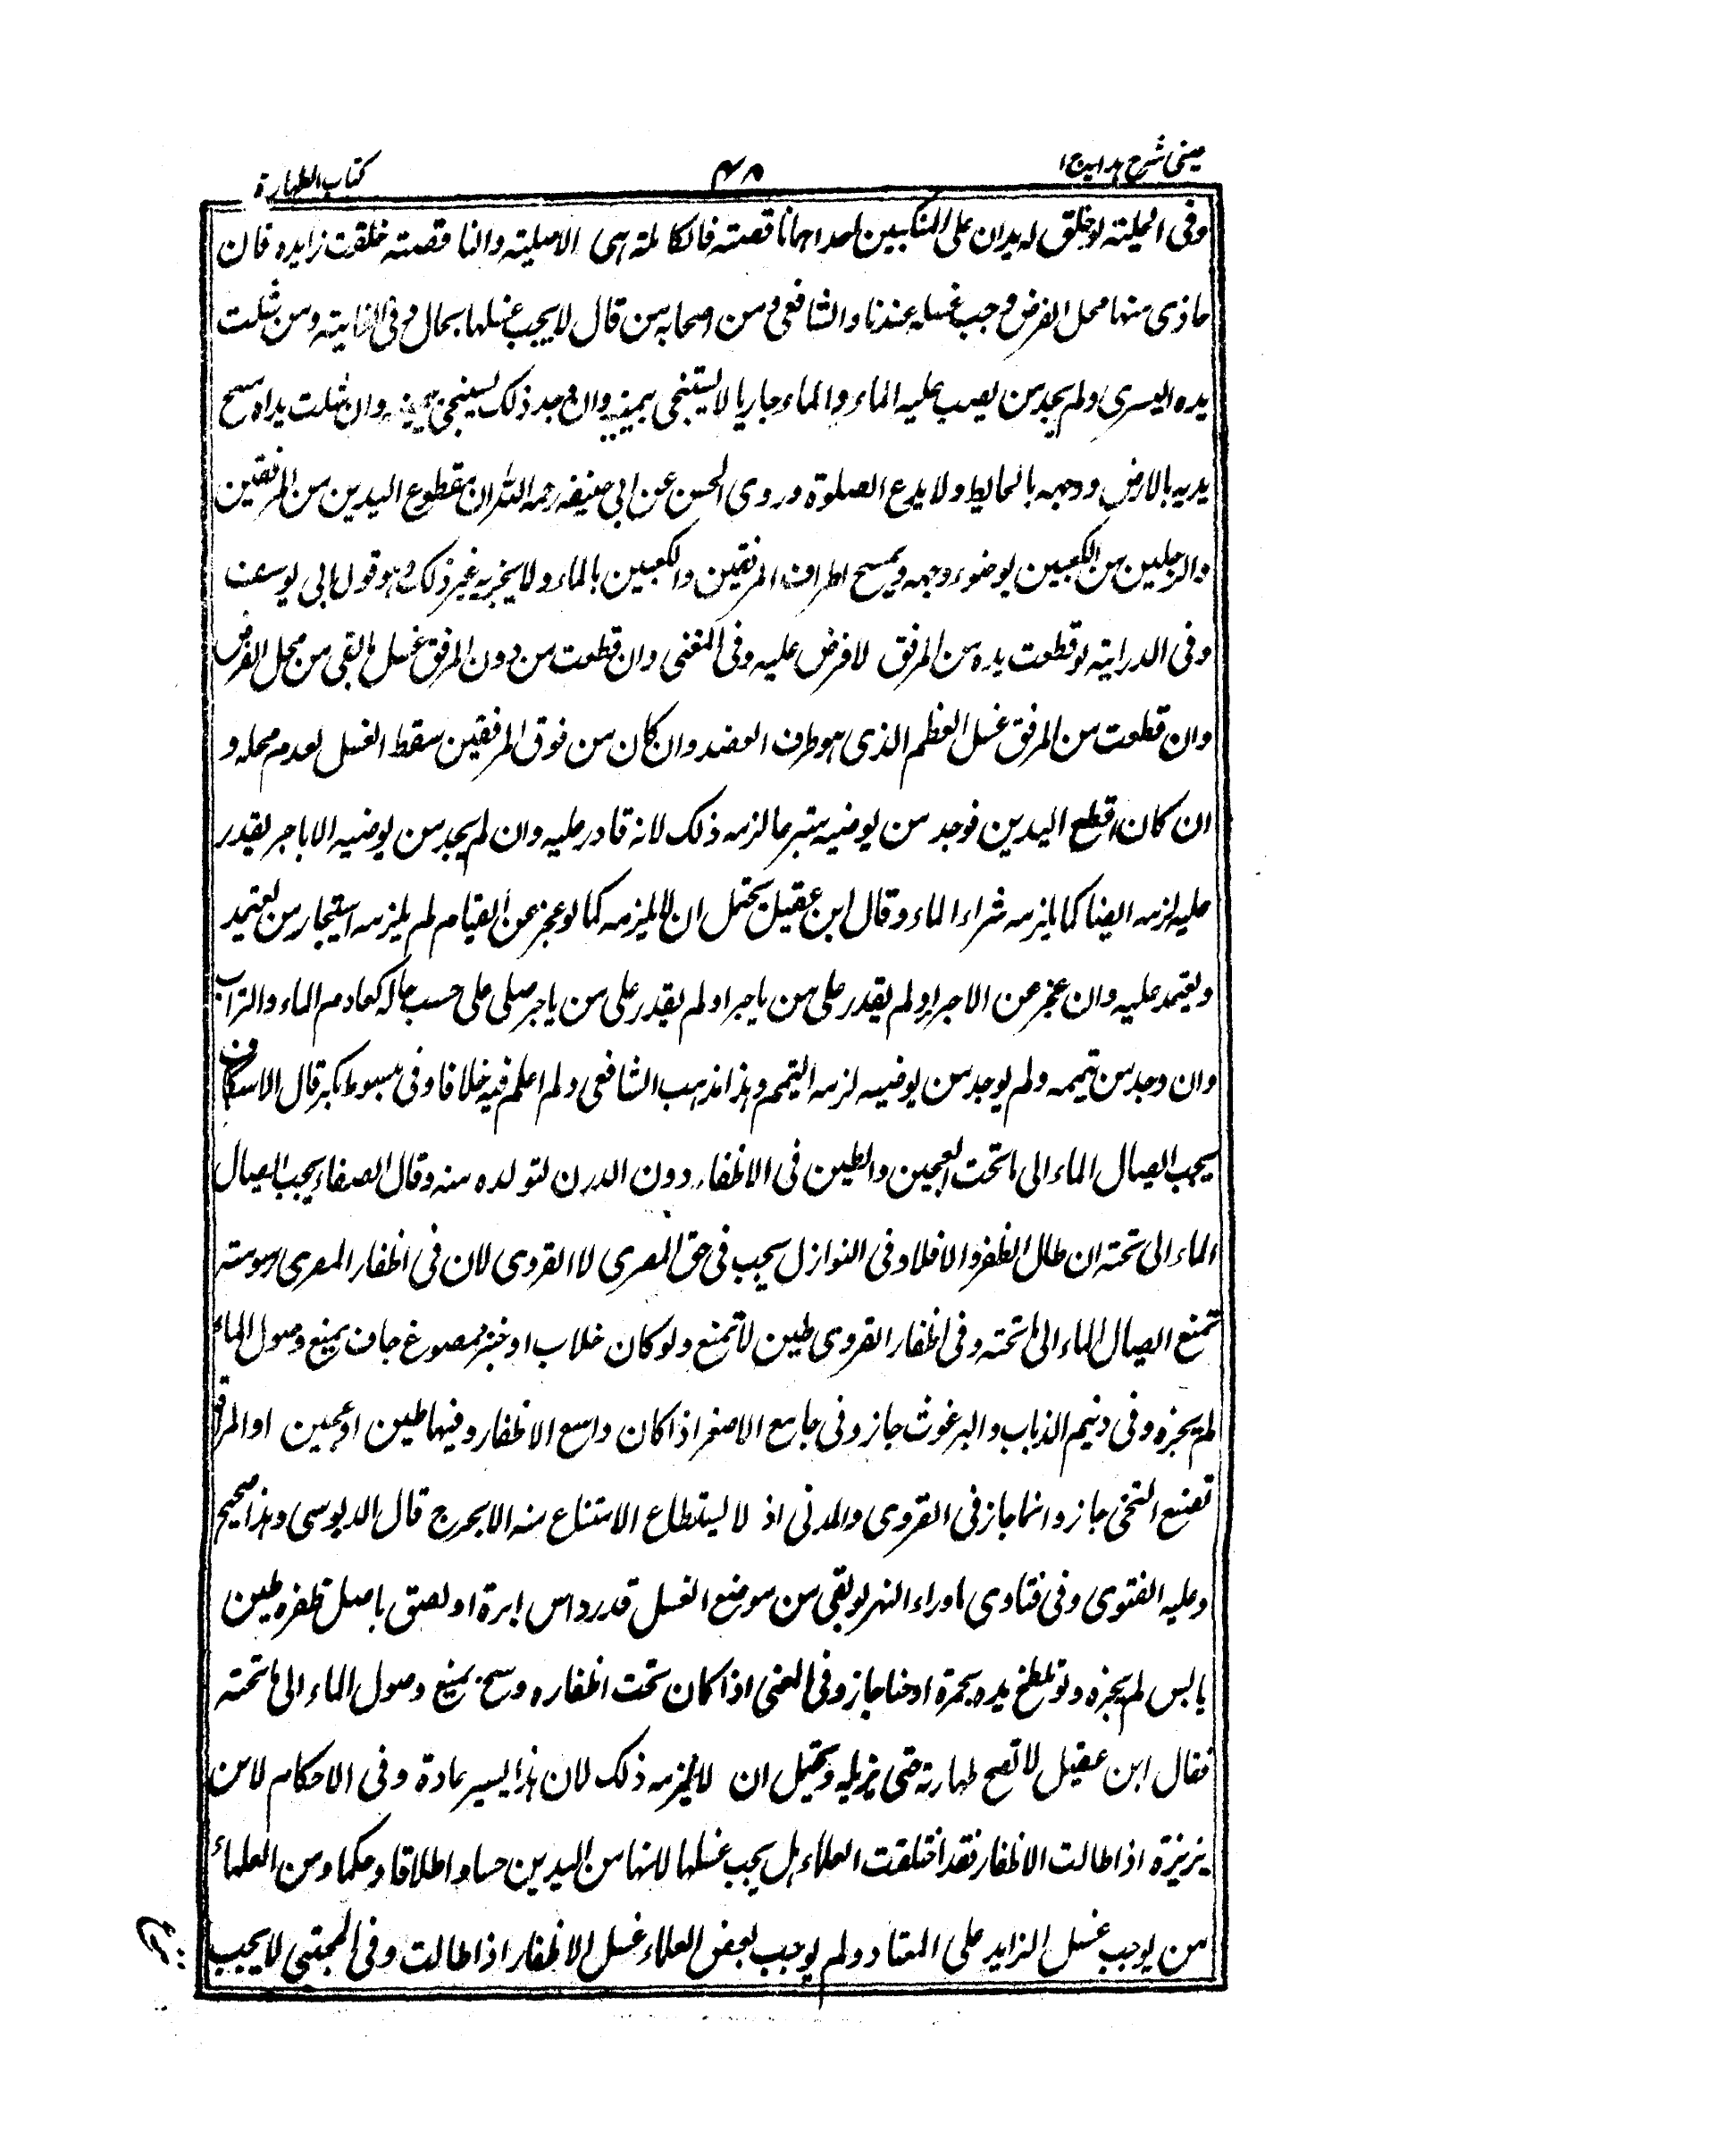 عینی شرح ہدایہ ج ا
۴۸
کتاب الطہارة
وفی الحلیتہ لو خلق لہ یدان علی المنکبین احداہما ناقصتہ فالکاملتہ ہی الاصلیتہ والناقصتہ خلقت زایدہ فان
حاذی منہا محل الفرض وجب غسلہ عندنا والشافعی ومن اصحابہ من قال لا یجب غسلہا بحال وفی الغایتہ ومن شلت
یدہ الیسری ولم یجد من یصب علیہ الماء والماء جاریا لا یستنجی بیمینہ وان وجد ذلک یستنجی بیمینہ وان شلت یداہ مسح
یدیہ بالارض ووجہہ بالحایط ولا یدع الصلوة وروی الحسن عن ابی حنیفہ رحمہ اللہ ان مقطوع الیدین من المرفقین
والرجلین من الکعبین یوضوء وجہہ ویمسح اطراف المرفقین والکعبین بالماء ولا یجزیہ غیر ذلک وہو قول ابی یوسف
وفی الدرایتہ لو قطعت یدہ من المرفق لا فرض علیہ وفی المغنی وان قطعت من دون المرفق غسل ما بقی من محل الفرض
وان قطعت من المرفق غسل العظم الذی ہو طرف العضد وان کان من فوق المرفقین سقط الغسل لعدم محلہ و
ان کان اقطع الیدین فوجد من یوضیہ متبرعا لزمہ ذلک لانہ قادر علیہ وان لم یجد من یوضیہ الا باجر یقدر
علیہ لزمہ ایضا کما یلزمہ شراء الماء وقال ابن عقیل یحتمل ان لا یلزمہ کما لو عجز عن القیام لم یلزمہ استیجار من یعتمد
ویعتمد علیہ وان عجز عن الاجر او لم یقدر علی من یاجر او لم یقدر علی من یاجر صلی علی حسب حالہ کعادم الماء والتراب
وان وجد من تیممہ ولم یوجد من یوضیہ لزمہ التیمم وہذا مذہب الشافعی ولم اعلم فیہ خلافا وفی مبسوط بکر قال الاسکاف
یجب ایصال الماء الی ما تحت العجین والطین فی الاظفار دون الدرن لتولدہ منہ وقال الصفار یجب ایصال
الماء الی تحتہ ان طال الظفر والا فلا وفی النوازل یجب فی حق المصری لا القروی لان فی اظفار المصری دسومتہ
تمنع ایصال الماء الی ما تحتہ وفی اظفار القروی طین لا تمنع ولو کان خلاب او خبز ممصوغ جاف یمنع وصول الماء
لم یجزہ وفی دنیم الذباب والبرغوث جاز وفی جامع الاصغر اذا کان واسع الاظفار وفیہا طین او عجین او المرأة
تصنع الحنی جاز وانما جاز فی القروی والمدنی اذ لا یستطاع الامتناع منہ الا بحرج قال الدبوسی وہذا صحیح
وعلیہ الفتوی وفی فتاوی ماوراء النہر لو بقی من موضع الغسل قدر راس ابرة او لصق باصل ظفرہ طین
یابس لم یجزہ ولو تلطخ یدہ بخمرة او حنا جاز وفی المغنی اذا کان تحت اظفارہ وسخ یمنع وصول الماء الی ما تحتہ
فقال ابن عقیل لا تصح طہارتہ حتی یزیلہ ویحتمل ان لا یلزمہ ذلک لان ہذا یسیر عادة وفی الاحکام لابن
بزیزة اذا طالت الاظفار فقد اختلقت العلماء ہل یجب غسلہا لانہا من الیدین حسا واطلاقا وحکما ومن العلماء
من یوجب غسل الزاید علی المعتاد ولم یوجب بعض العلماء غسل الاظفار اذا طالت وفی المجتبی لا یجب